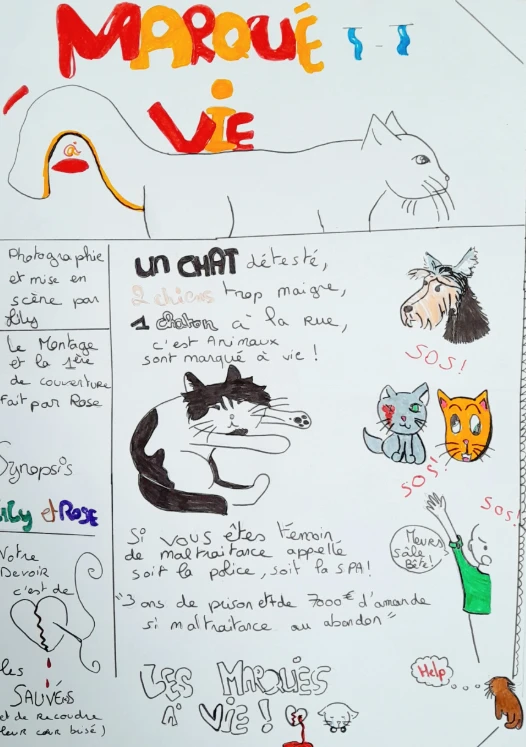 MARQUÉ
à
VIE
Photographie
et mise en
scène par
Lily
Le Montage
et la 1ère
de couverture
fait par Rose
Synopsis
Lily et Rose
Votre
Devoir
c'est de
les
SAUVÉR
et de recoudre
leur cœur brisé)
UN CHAT détesté,
2 chiens trop maigre,
1 chaton à la rue,
c'est Animaux
sont marqué à vie !
SOS!
SOS!
SOS!
Si vous êtes témoin
de maltraitance appellé
soit la police, soit la SPA!
"3 ans de prison et de 7000€ d'amande
si maltraitance ou abandon"
Meurs
Sale
Bête!
Help
LES MARQUÉS
À VIE !